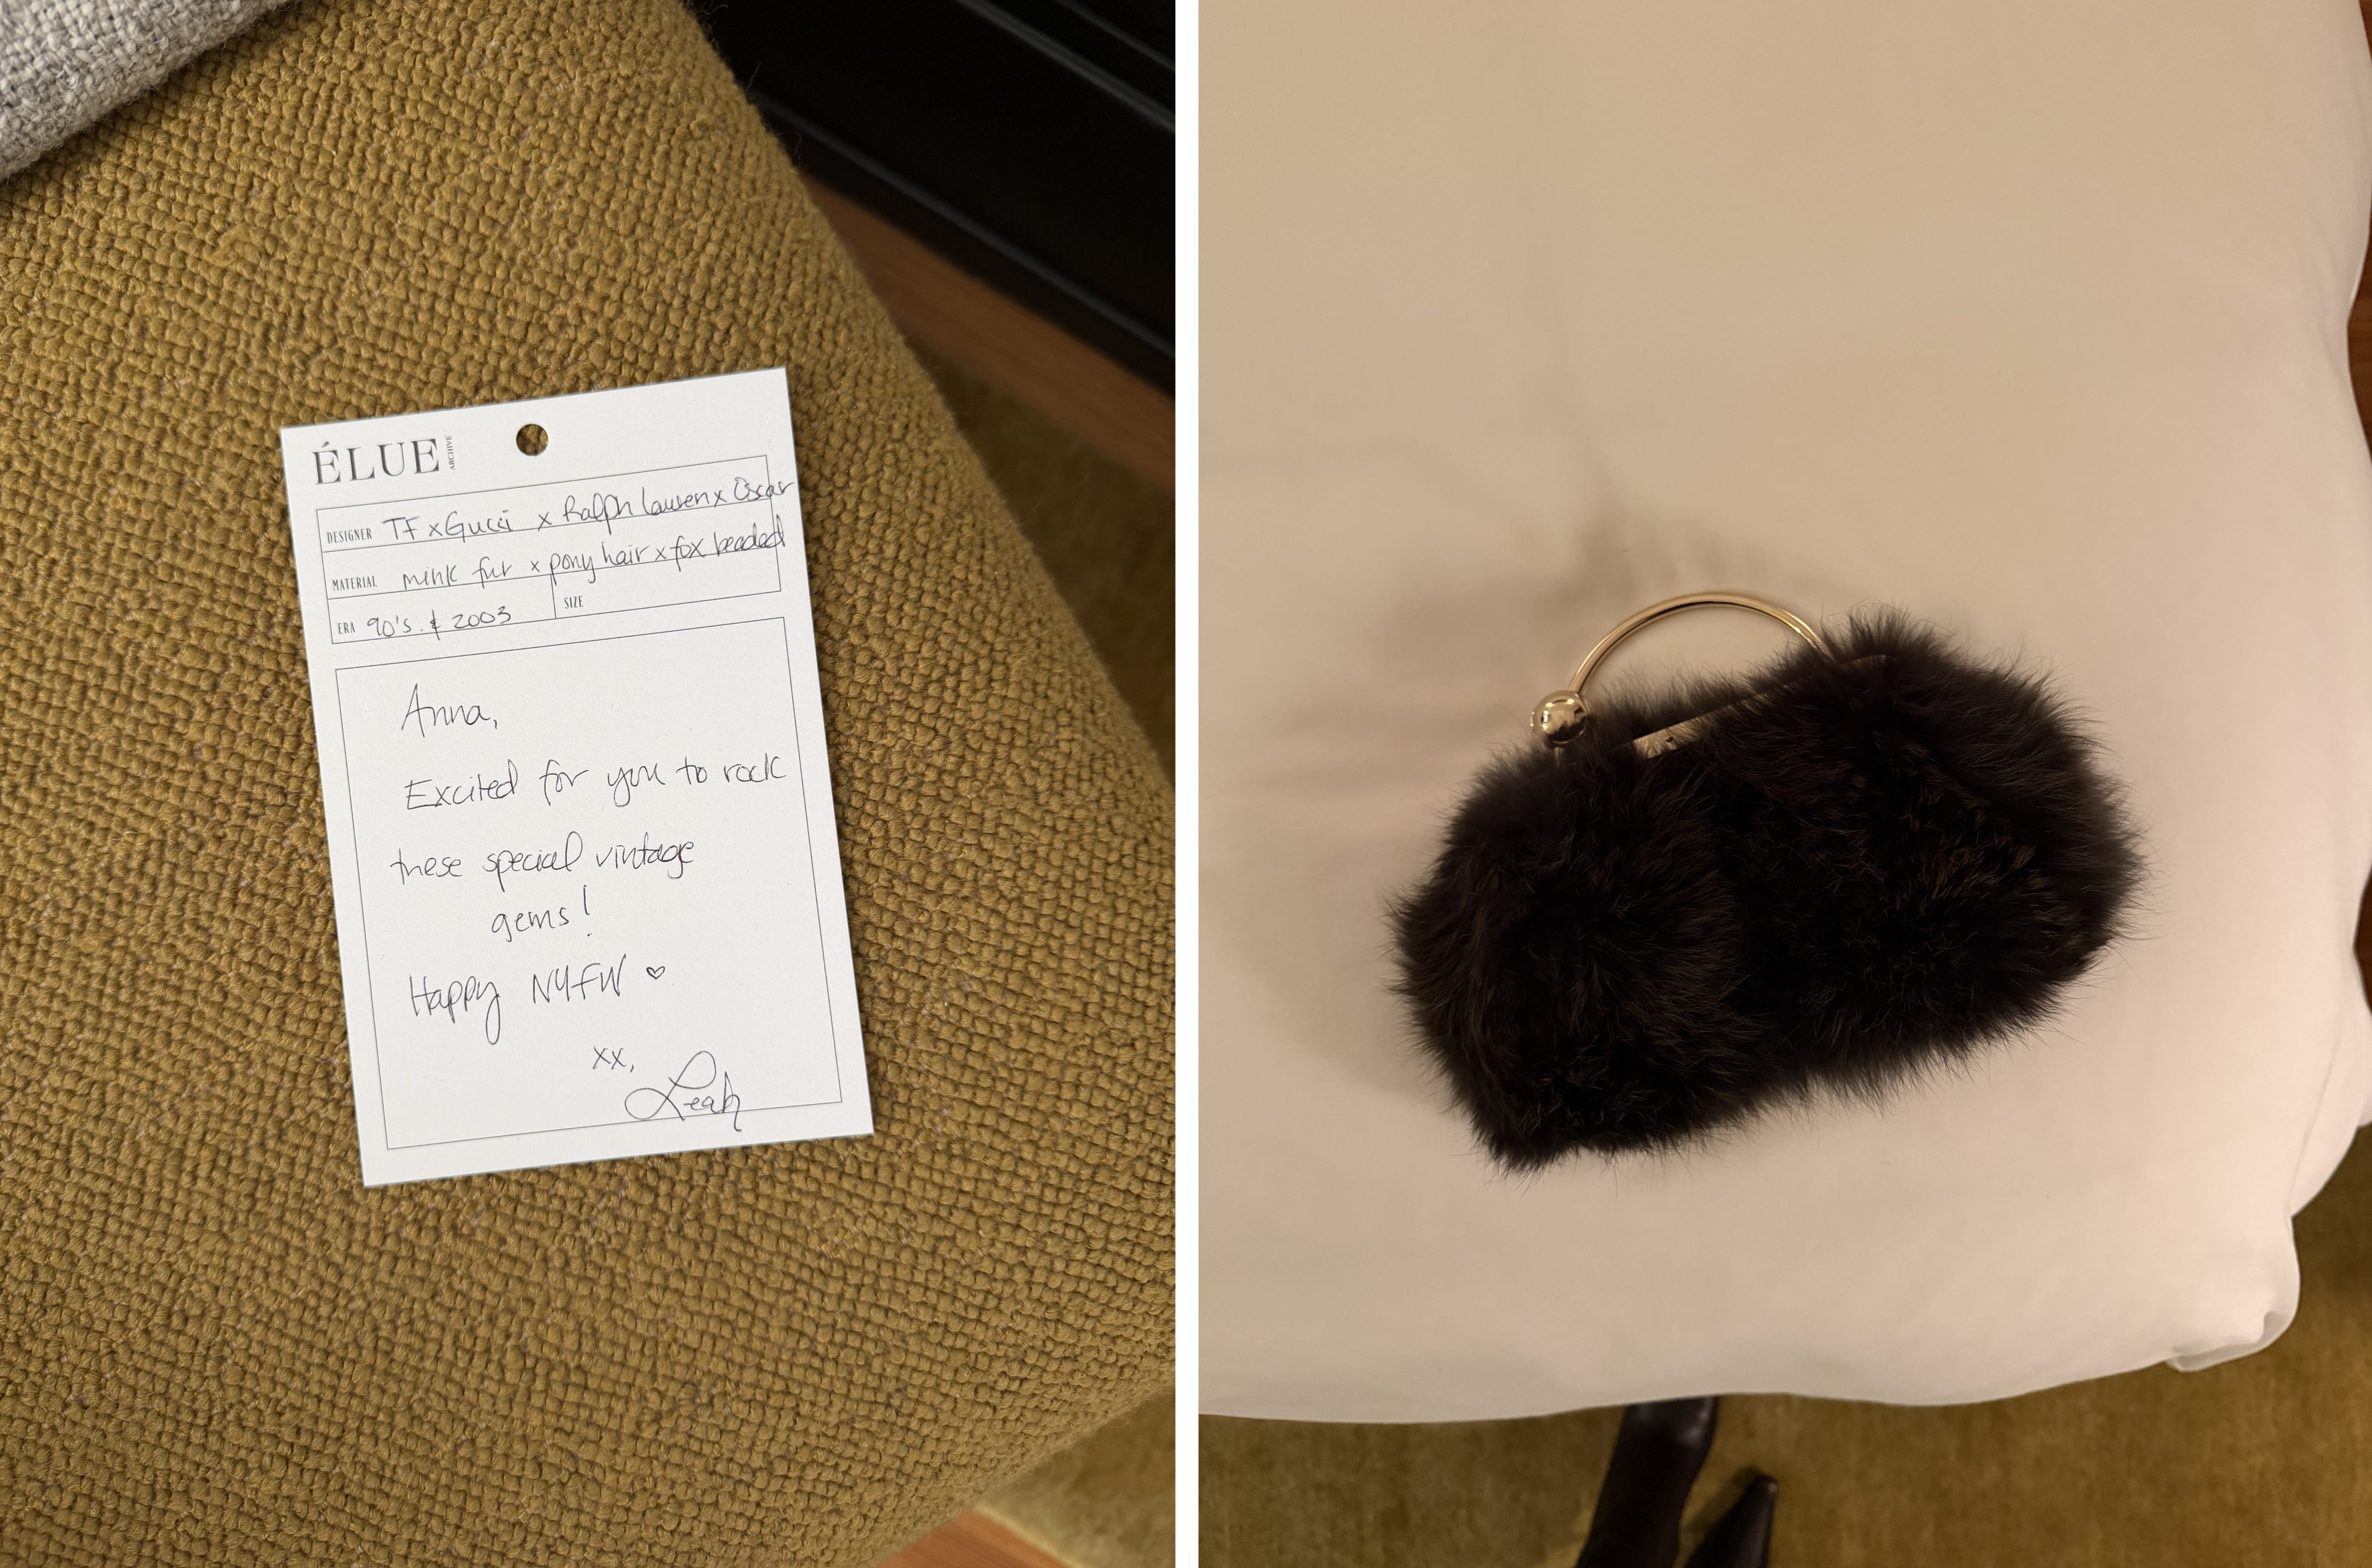 ÉLUE ARCHIVE
DESIGNER TF x Gucci x Ralph Lauren x Oscar
MATERIAL mink fur x pony hair x fox beaded
ERA 90's & 2003 SIZE
Anna,
Excited for you to rock
these special vintage
gems!
Happy NYFW ♡
xx,
Leah